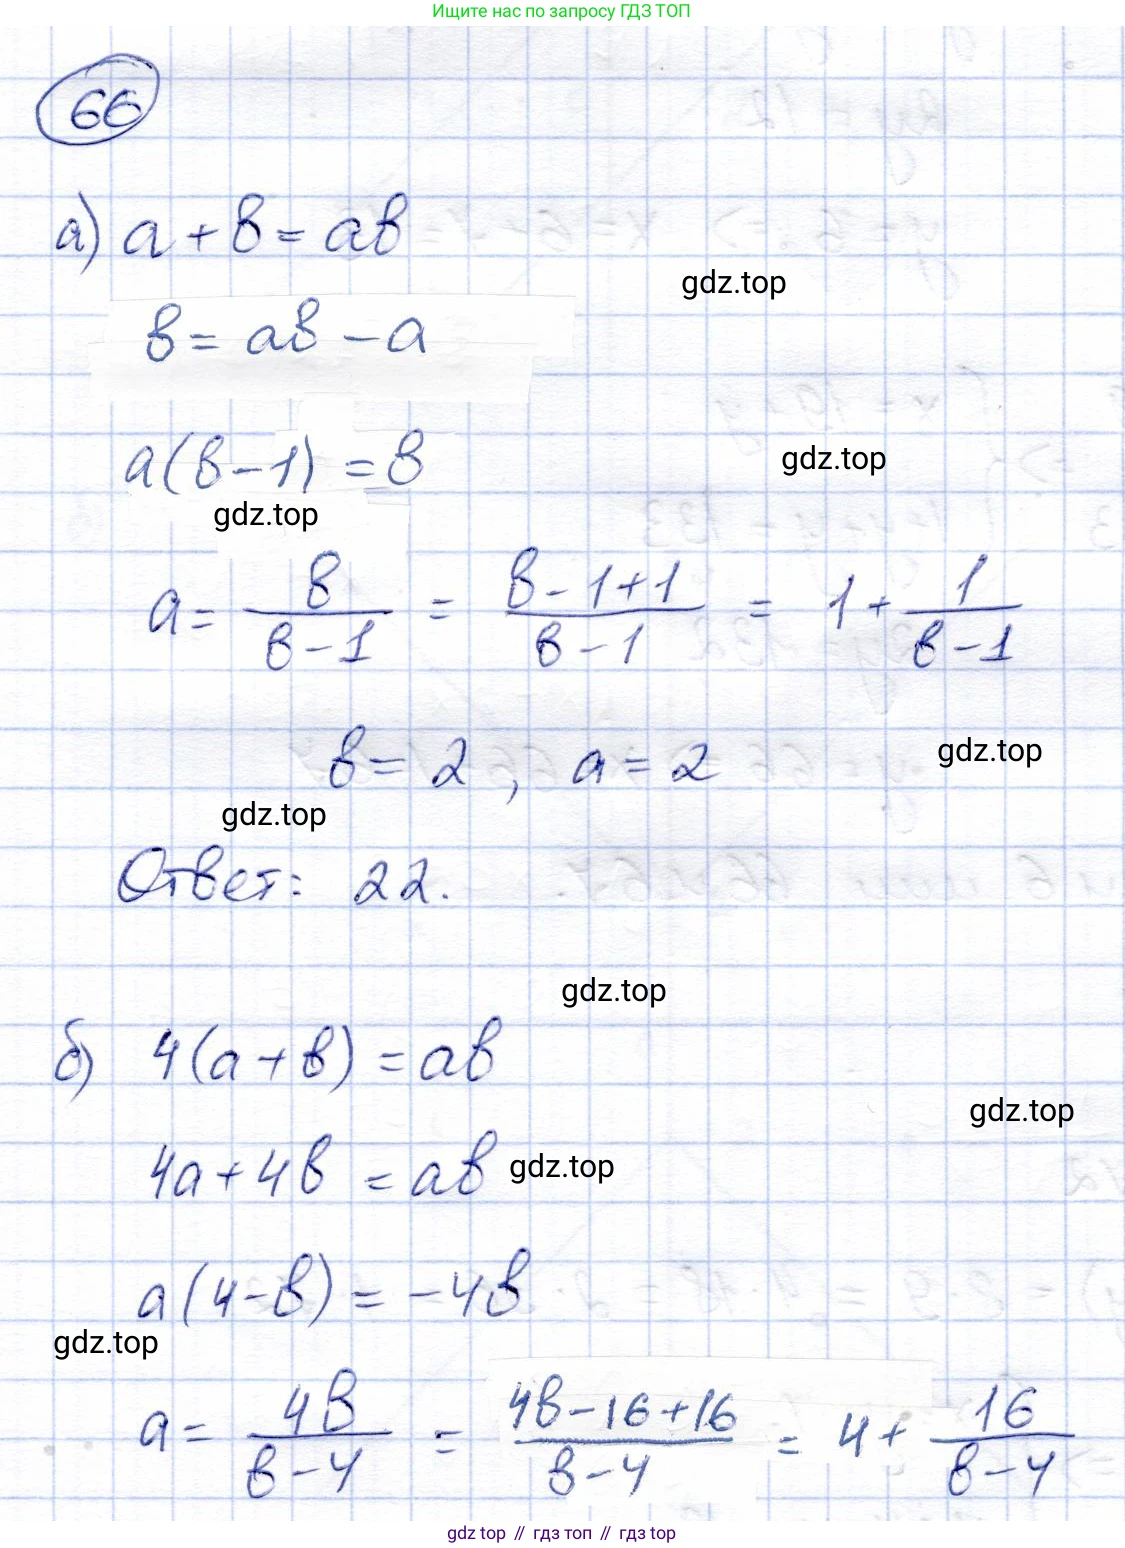 Ищите нас по запросу ГДЗ ТОП
66
а) a + b = ab
gdz.top
b = ab - a
a(b-1) = b
gdz.top
gdz.top
a = b/(b-1) = (b-1+1)/(b-1) = 1 + 1/(b-1)
b = 2, a = 2
gdz.top
gdz.top
Ответ: 22.
gdz.top
б) 4(a+b) = ab
gdz.top
4a + 4b = ab
gdz.top
a(4-b) = -4b
gdz.top
a = 4b/(b-4) = (4b-16+16)/(b-4) = 4 + 16/(b-4)
gdz top // гдз топ // гдз top